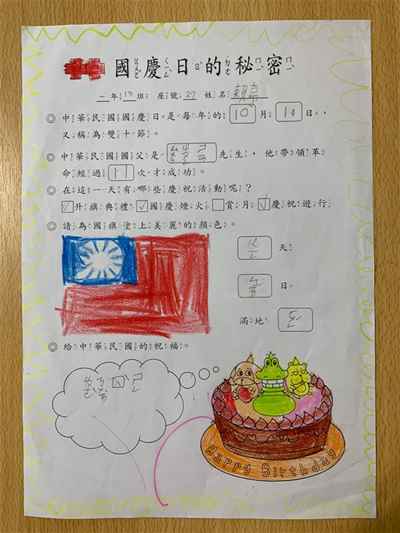 國慶日的秘密
一年 班 座號27 姓名
◎中華民國國慶日是每年的10月10日，
又稱為雙十節。
◎中華民國國父是 先生，他帶領革
命經過11次才成功。
◎在這一天有哪些慶祝活動呢？
☑升旗典禮☑國慶煙火□賞月☑慶祝遊行
◎請為國旗塗上美麗的顏色。
天
日
滿地
◎給中華民國的祝福。
Happy Birthday